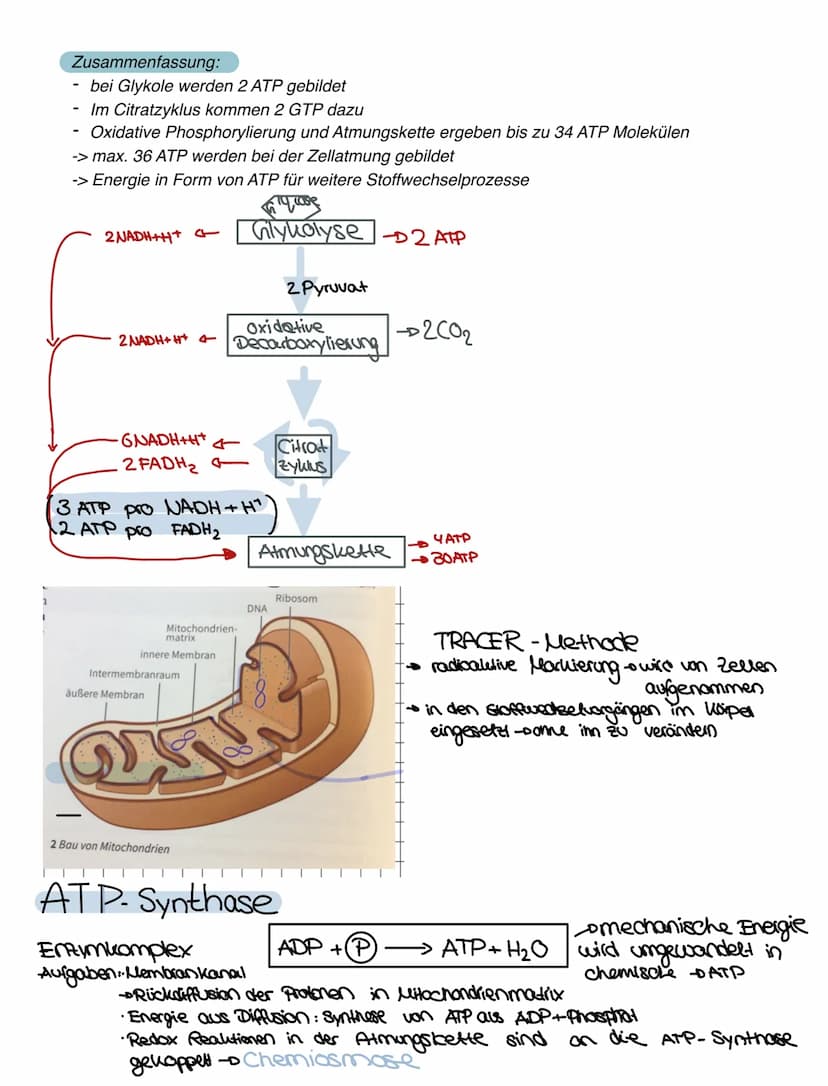 Zusammenfassung:
- bei Glykole werden 2 ATP gebildet
- Im Citratzyklus kommen 2 GTP dazu
- Oxidative Phosphorylierung und Atmungskette ergeben bis zu 34 ATP Molekülen
-> max. 36 ATP werden bei der Zellatmung gebildet
-> Energie in Form von ATP für weitere Stoffwechselprozesse
2NADH+H⁺ ← Glykolyse → 2 ATP
2 Pyruvat
Oxidative
2NADH+H⁺ ← Decarboxylierung → 2CO₂
6NADH+H⁺ ← Citrat
2 FADH₂ ← zyklus
3 ATP pro NADH+H⁺
2 ATP pro FADH₂
Atmungskette → 4 ATP
→ 30ATP
Ribosom
DNA
Mitochondrien-
matrix
innere Membran
Intermembranraum
äußere Membran
2 Bau von Mitochondrien
TRACER - Methode
→ radioaktive Markierung → wird von Zellen
aufgenommen
→ in den Stoffwechselvorgängen im Körper
eingesetzt → ohne ihn zu verändern
ATP-Synthase
Enzymkomplex
ADP + P → ATP + H₂O
→ mechanische Energie
wird umgewandelt in
chemische → ATP
Aufgaben: · Membrankanal
→ Rückdiffusion der Protonen in Mitochondrienmatrix
· Energie aus Diffusion: Synthese von ATP aus ADP+Phosphat
· Redox Reaktionen in der Atmungskette sind an die ATP-Synthase
gekoppelt → Chemiosmose